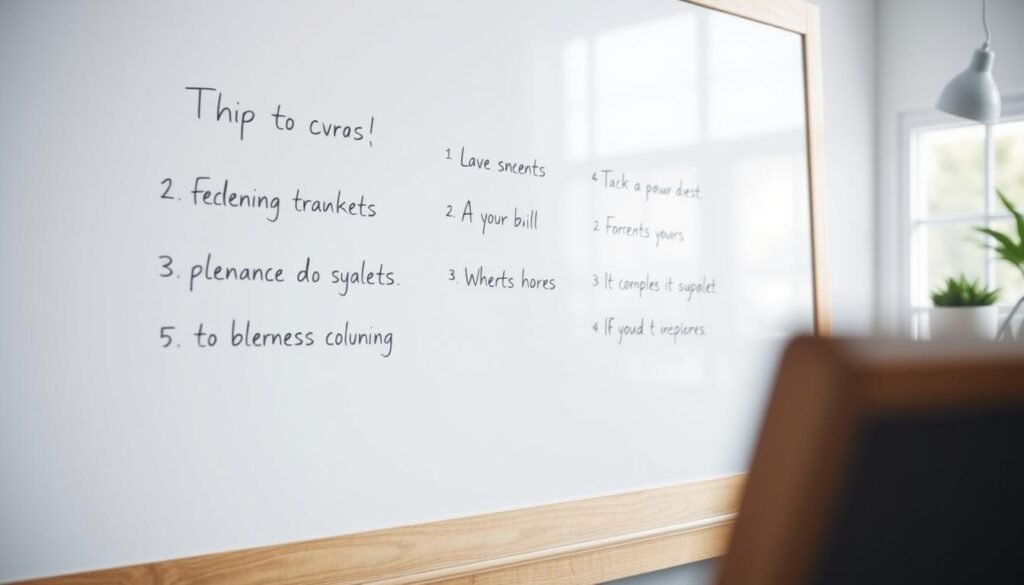 Thip to cvros!
2. Feclening trankets
3. plenance do syalets.
5. to blerness coluning
1 Lave sncents
2. A your bill
3. Wherts hores
4 Tack a pour diest.
2 Forrents yours
3 It comples it supolet.
4 If youd t ineplores.